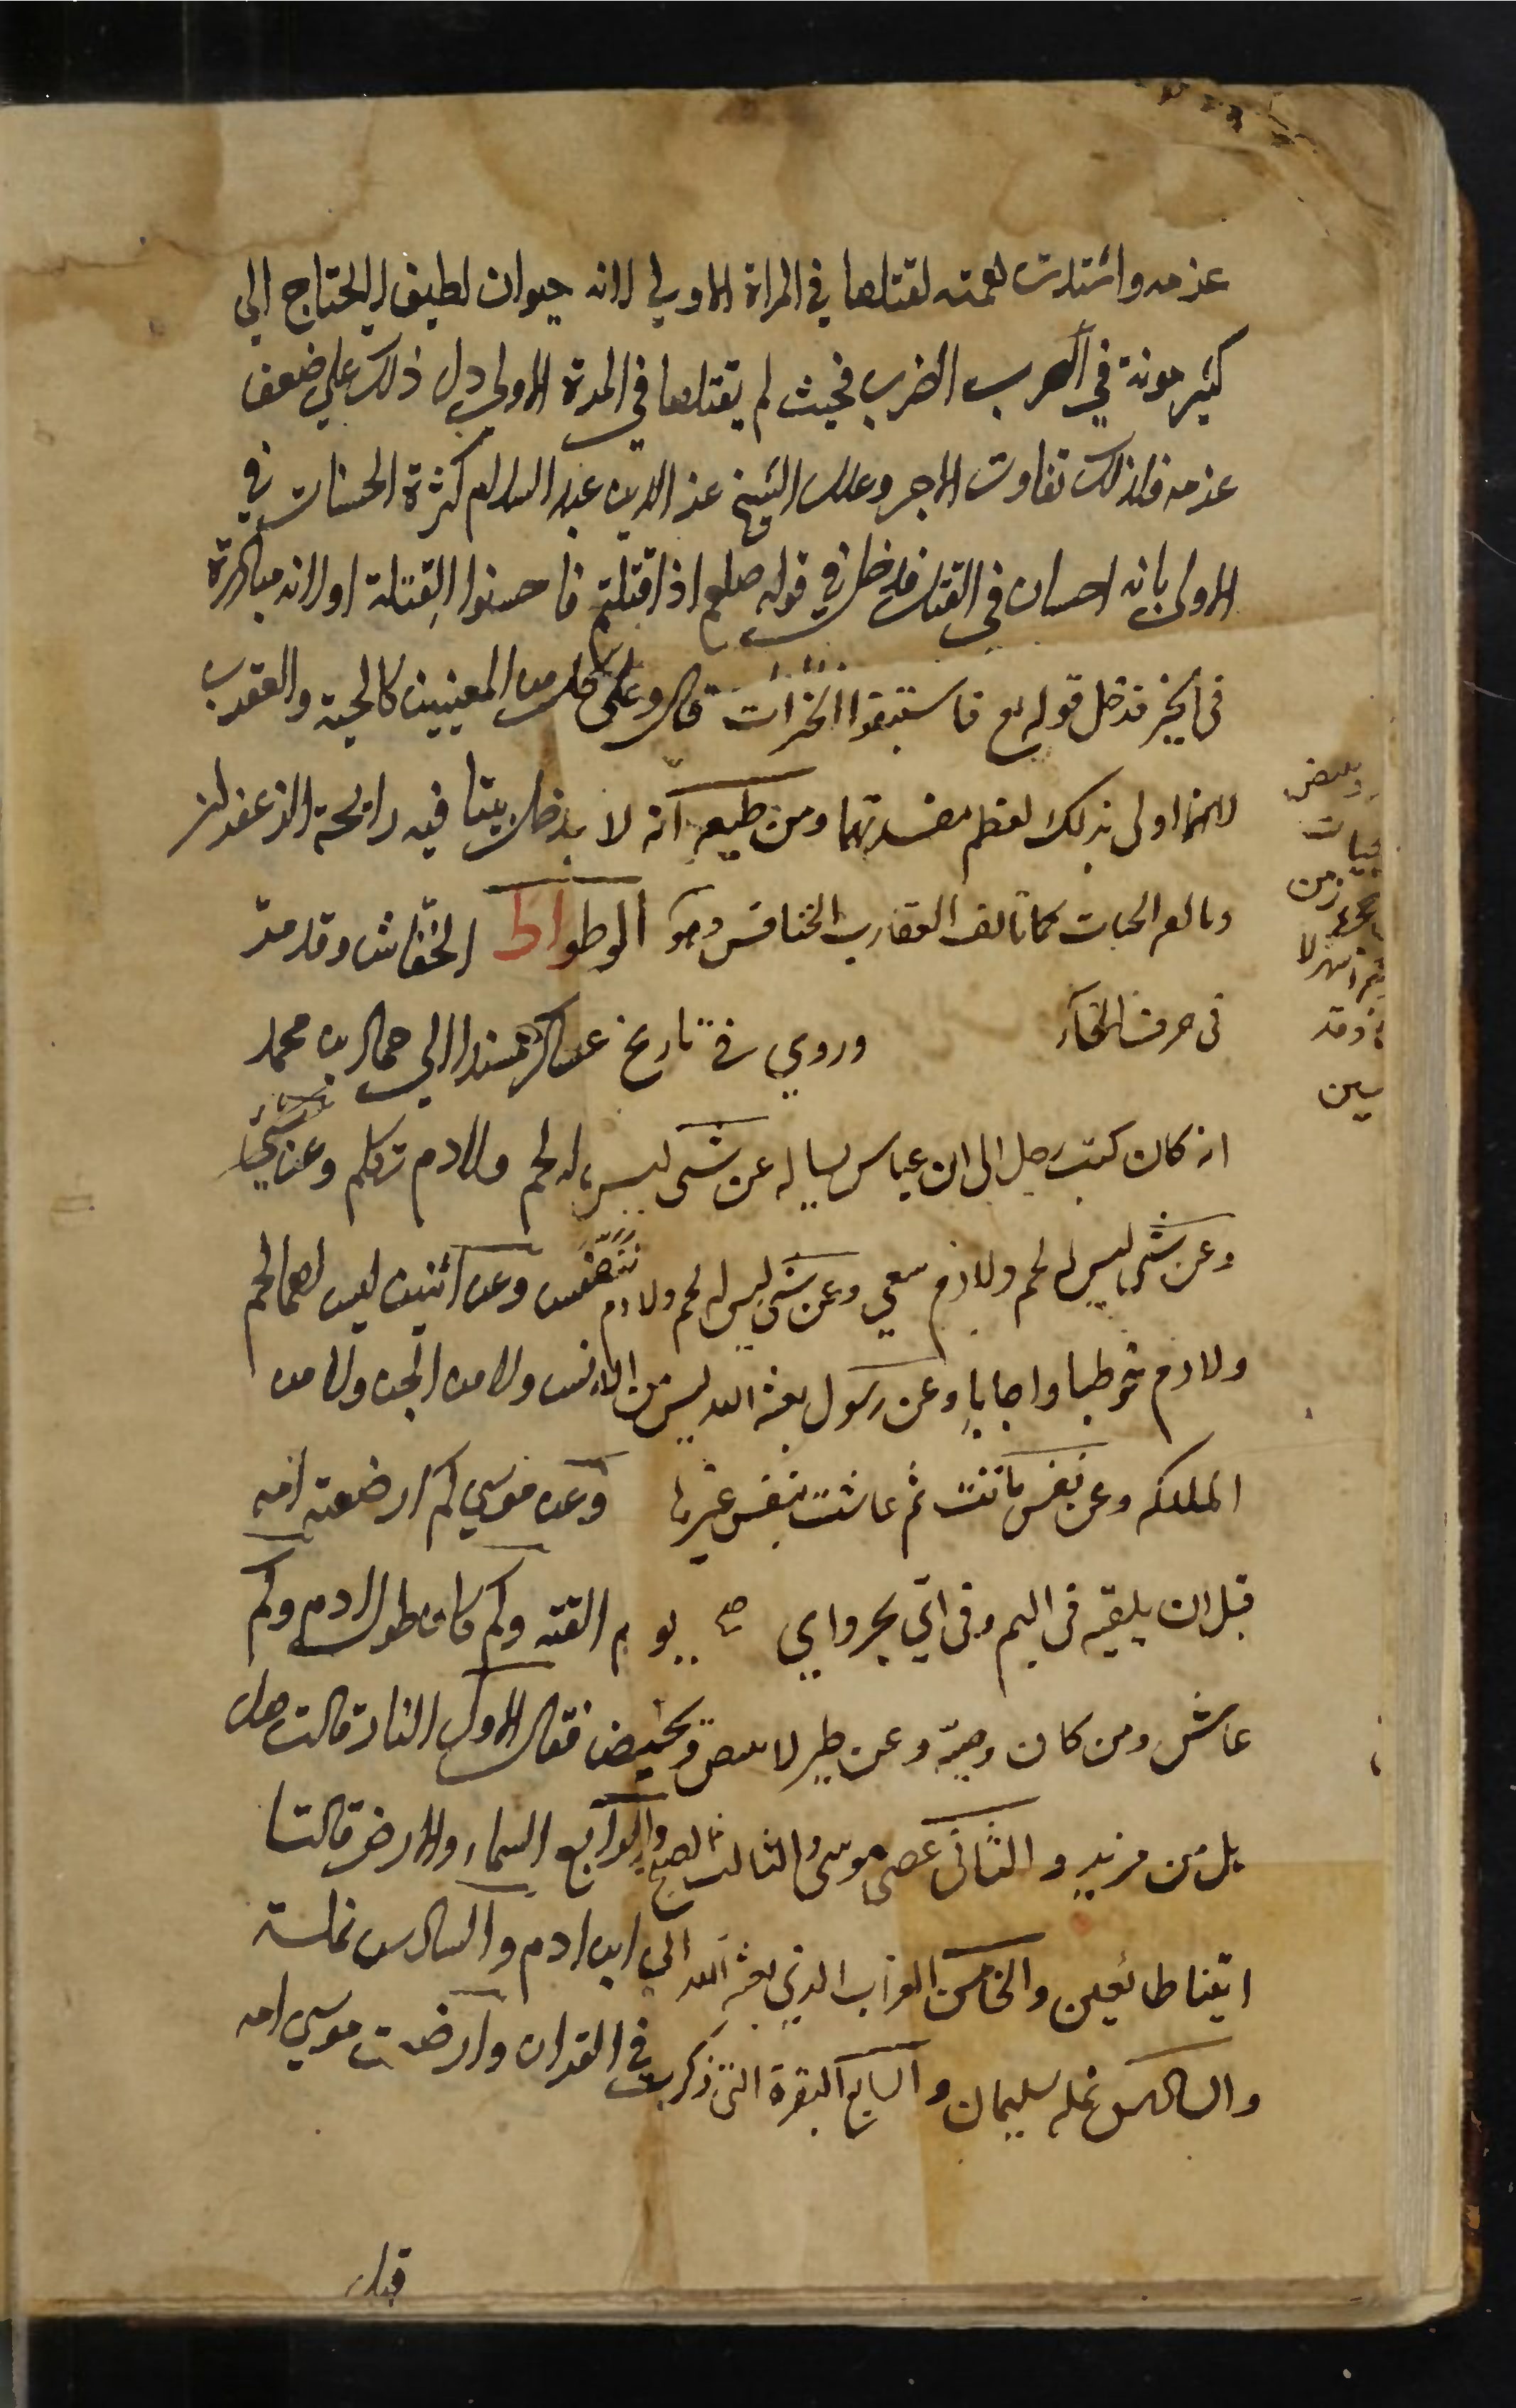 عزمه واشتدت همته لقتلها في المراة الاولي لانه حيوان لطيف لايحتاج الي
كثير مونة في الضرب فحيث لم يقتلها في المرة الاولي دل ذلك علي ضعف
عزمه فلذلك تفاوت الاجر وعلل الشيخ عز الدين عبد السلام كثرة الحسنات في
الاولي بانه احسان في القتل فدخل في قوله صلعم اذا قتلتم فاحسنوا القتلة او لانه مبادرة
في الخير فدخل قوله تع فاستبقوا الخيرات قال وعلي كل من المعنيين كالحية والعقرب
لانهما اولي بذلك لعظم مفسدتهما ومن طبعه انه لا يدخل بيتا فيه رائحة الزعفران
ويالف الحيات كما تالف العقارب الخنافس وهو الوطواط الخفاش وقد مر
في حرف الخاء وروي في تاريخ عساكر مسندا الي حماد بن محمد
انه كان كتب رجل الي ابن عباس يساله عن شي ليس له لحم ولادم تكلم وعن شي
وعن شي ليس له لحم ولادم سعي وعن شي ليس له لحم ولادم تنفس وعن اثنين ليس لهما لحم
ولادم خوطبا واجابا وعن رسول بعثه الله ليس من الانس ولا من الجن ولا من
الملئكه وعن نفس ماتت ثم عاشت بنفس غيرها وعن موسي كم ارضعته امه
قبل ان يلقيه في اليم وفي اي بحر واي يوم القته وكم كان طول ادم وكم
عاش ومن كان وصيه وعن طير لا يبيض ويحيض فقال الاول النار قالت هل
بل من مزيد والثاني عصي موسي والثالث الصبح والرابع السماء والارض قالتا
اتينا طائعين والخامس الغراب الذي بعثه الله الي ابن ادم والسادس نملة
والسادس نمله سليمان والسابع البقرة التي ذكرت في القران وارضعت موسي امه
قبل
وبعض